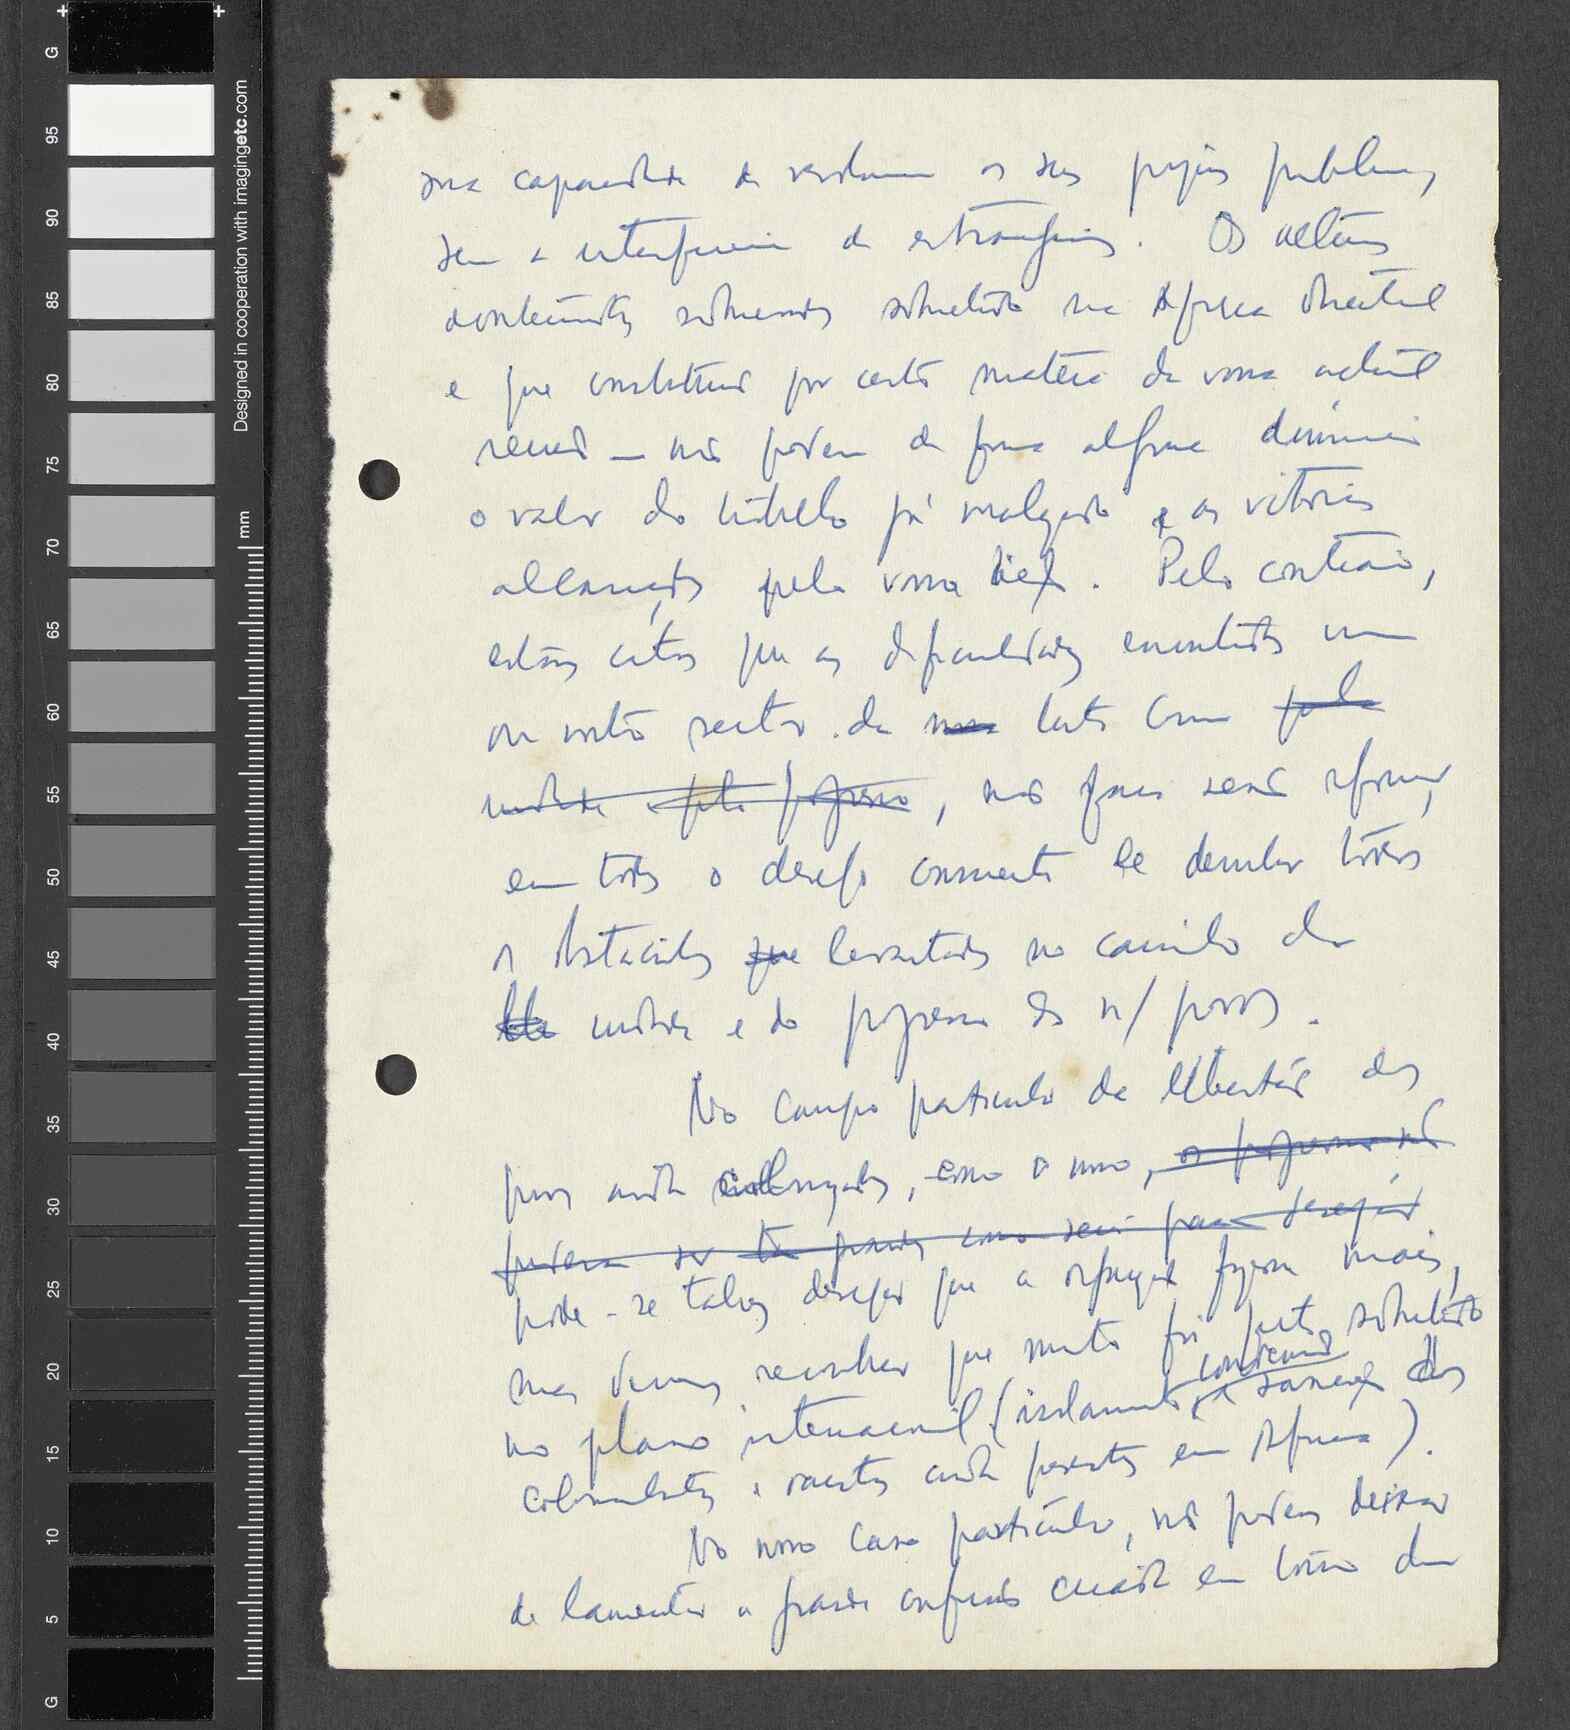 G
95
90
85
80
75
70
65
60
55
50
45
40
35
30
25
20
15
10
5
G
Designed in cooperation with imagingetc.com
mm
sua capacidade de resolverem os seus próprios problemas,
sem a interferência de estrangeiros. Os últimos
acontecimentos sobretudo na África Oriental
e que constituem por certo matéria da vossa actual
reunião — não podem de forma alguma diminuir
o valor do trabalho já realizado e as vitórias
alcançadas pela vossa. Pelo contrário,
estamos certos que as dificuldades encontradas num
ou noutro sector da nossa luta comum pela
unidade e pelo progresso, não farão senão reforçar,
em todos o desejo consciente de derrubar todos
os obstáculos que levantados no caminho da
unidade e do progresso dos n/ povos.
No campo particular da libertação dos
povos ainda colonizados, como o nosso, os progressos não
puderam ser tão grandes como seria para desejar
pode-se talvez desejar que a organização fizesse mais,
mas devemos reconhecer que muito foi feito, sobretudo
no plano internacional (isolamento, condenação e sanções dos
colonialistas e racistas ainda presentes em África).
No nosso caso particular, não podemos deixar
de lamentar a grande confusão criada em torno da